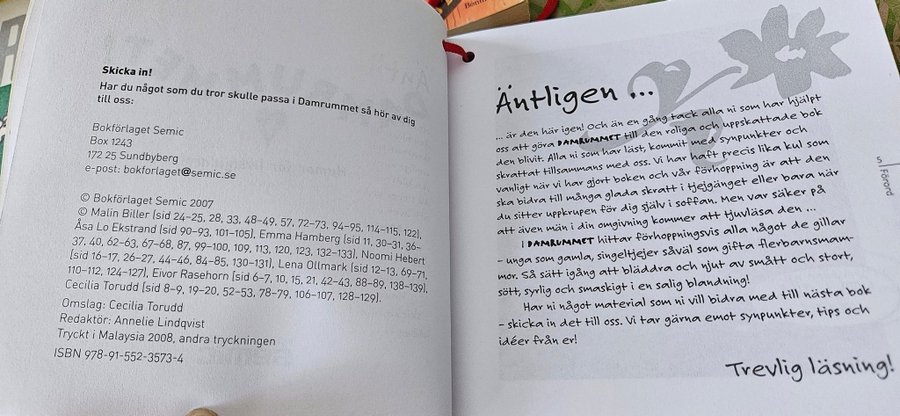 Skicka in!
Har du något som du tror skulle passa i Damrummet så hör av dig
till oss:
Bokförlaget Semic
Box 1243
172 25 Sundbyberg
e-post: bokforlaget@semic.se
© Bokförlaget Semic 2007
© Malin Biller (sid 24–25, 28, 33, 48–49, 57, 72–73, 94–95, 114–115, 122),
Åsa Lo Ekstrand (sid 90–93, 101–105), Emma Hamberg (sid 11, 30–31, 36–
37, 40, 62–63, 67–68, 87, 99–100, 109, 113, 120, 123, 132–133), Noomi Hebert
(sid 16–17, 26–27, 44–46, 84–85, 130–131), Lena Ollmark (sid 12–13, 69–71,
110–112, 124–127), Eivor Rasehorn (sid 6–7, 10, 15, 21, 42–43, 88–89, 138–139),
Cecilia Torudd (sid 8–9, 19–20, 52–53, 78–79, 106–107, 128–129).
Omslag: Cecilia Torudd
Redaktör: Annelie Lindqvist
Tryckt i Malaysia 2008, andra tryckningen
ISBN 978-91-552-3573-4
Äntligen ...
... är den här igen! Och än en gång tack alla ni som har hjälpt
oss att göra DAMRUMMET till den roliga och uppskattade bok
den blivit. Alla ni som har läst, kommit med synpunkter och
skrattat tillsammans med oss. Vi har haft precis lika kul som
vanligt när vi har gjort boken och vår förhoppning är att den
ska bidra till många glada skratt i tjejgänget eller bara när
du sitter uppkrupen för dig själv i soffan. Men var säker på
att även män i din omgivning kommer att tjuvläsa den ...
I DAMRUMMET hittar förhoppningsvis alla något de gillar
– unga som gamla, singeltjejer såväl som gifta flerbarnsmam-
mor. Så sätt igång att bläddra och njut av smått och stort,
sött, syrlig och smaskigt i en salig blandning!
Har ni något material som ni vill bidra med till nästa bok
– skicka in det till oss. Vi tar gärna emot synpunkter, tips och
idéer från er!
Trevlig läsning!
5
Förord